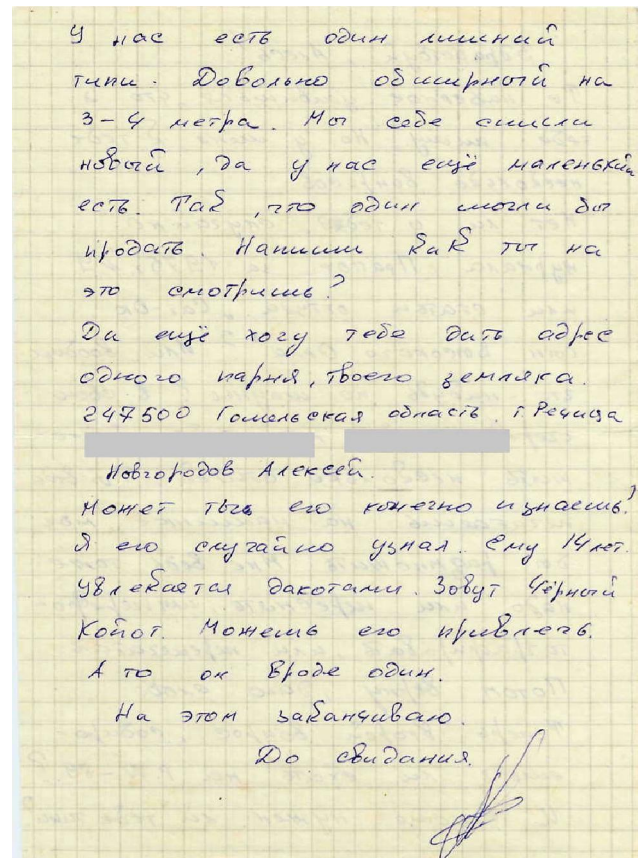 У нас есть один лишний
типи. Довольно обширный на
3-4 метра. Мы себе сшили
новый, да у нас ещё маленький
есть. Так, что один могли бы
продать. Напиши как ты на
это смотришь?
Да ещё хочу тебе дать адрес
одного парня, твоего земляка.
247500 Гомельская область г. Речица
Новгородов Алексей.
Может ты его конечно и знаешь?
Я его случайно узнал. Ему 14 лет.
Увлекается дакотами. Зовут Чёрный
Койот. Можешь его привлечь.
А то он вроде один.
На этом заканчиваю.
До свидания.